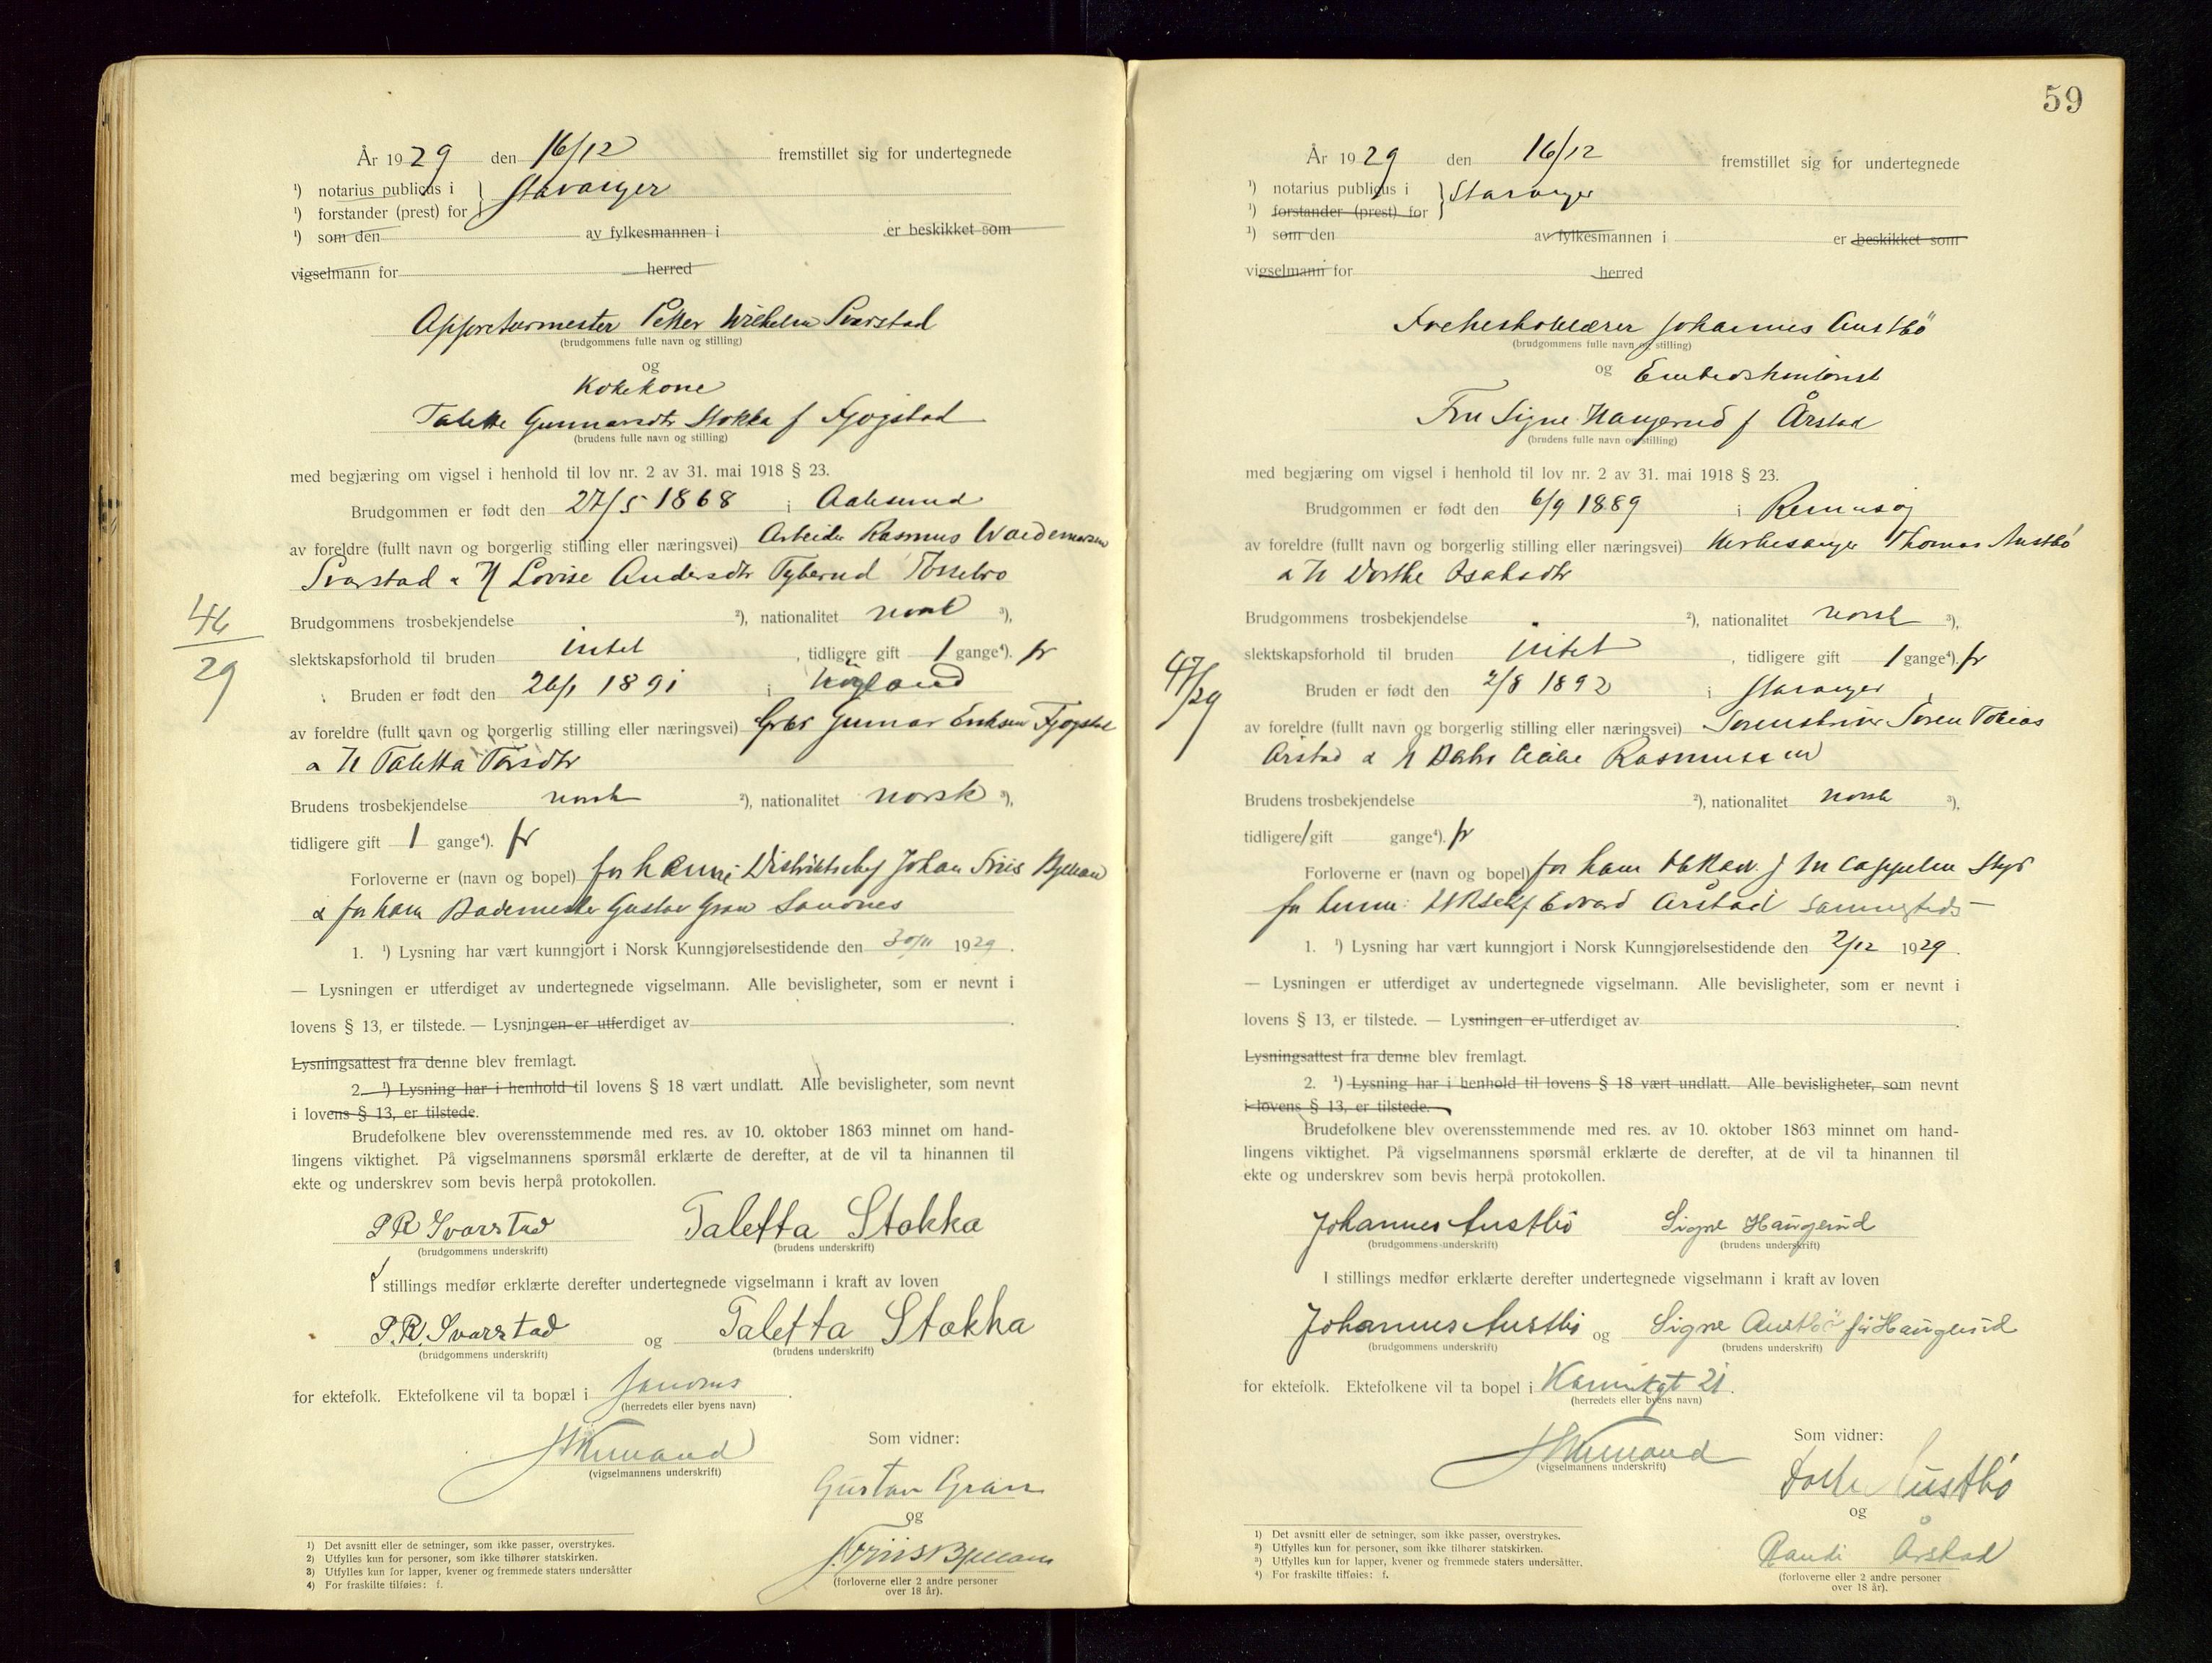 År 1929 den 16/12 fremstillet sig for undertegnede
¹) notarius publicus i } Stavanger
¹) forstander (prest) for
¹) som den av fylkesmannen i er beskikket som
vigselmann for herred
Appreturmester Petter Wilhelm Svarstad
(brudgommens fulle navn og stilling)
og
Kokekone
Talette Gunnarsdtr Stokka f Fjogstad
(brudens fulle navn og stilling)
med begjæring om vigsel i henhold til lov nr. 2 av 31. mai 1918 § 23.
Brudgommen er født den 27/5 1868 i Aalesund
av foreldre (fullt navn og borgerlig stilling eller næringsvei) Arbeider Rasmus Waldemarsen
Svarstad & H Lovise Andersdtr
Brudgommens trosbekjendelse ²), nationalitet norsk ³),
slektskapsforhold til bruden intet , tidligere gift 1 gange⁴). fr
Bruden er født den 26/1 1891 i Høyland
av foreldre (fullt navn og borgerlig stilling eller næringsvei) Grbr Gunnar Eriksen Fjogstad
& H Taletta Torsdtr
Brudens trosbekjendelse norsk ²), nationalitet norsk ³),
tidligere gift 1 gange⁴). fr
Forloverne er (navn og bopel) for henne: Distriktschef Johan Friis Bjelland
& for ham Bademester Gustav Gran Sandnes
1. ¹) Lysning har vært kunngjort i Norsk Kunngjørelsestidende den 30/11 1929.
— Lysningen er utferdiget av undertegnede vigselmann. Alle bevisligheter, som er nevnt i
lovens § 13, er tilstede. — Lysningen er utferdiget av
Lysningsattest fra denne blev fremlagt.
2. ¹) Lysning har i henhold til lovens § 18 vært undlatt. Alle bevisligheter, som nevnt
i lovens § 13, er tilstede.
Brudefolkene blev overensstemmende med res. av 10. oktober 1863 minnet om hand-
lingens viktighet. På vigselmannens spørsmål erklærte de derefter, at de vil ta hinannen til
ekte og underskrev som bevis herpå protokollen.
P R Svarstad Taletta Stokka
(brudgommens underskrift) (brudens underskrift)
I stillings medfør erklærte derefter undertegnede vigselmann i kraft av loven
P.R. Svarstad og Taletta Stokka
(brudgommens underskrift) (brudens underskrift)
for ektefolk. Ektefolkene vil ta bopæl i Sandnes.
(herredets eller byens navn)
(vigselmannens underskrift)
Som vidner:
Gustav Gran
og
J. Friis Bjelland
(forloverne eller 2 andre personer
over 18 år).
1) Det avsnitt eller de setninger, som ikke passer, overstrykes.
2) Utfylles kun for personer, som ikke tilhører statskirken.
3) Utfylles kun for lapper, kvener og fremmede staters undersåtter
4) For fraskilte tilføies: f.
46
29
59
År 1929 den 16/12 fremstillet sig for undertegnede
¹) notarius publicus i } Stavanger
¹) forstander (prest) for
¹) som den av fylkesmannen i er beskikket som
vigselmann for herred
Johannes Austbö
(brudgommens fulle navn og stilling)
og Embedskontorist
Fru Signe Haugerud f Årstad
(brudens fulle navn og stilling)
med begjæring om vigsel i henhold til lov nr. 2 av 31. mai 1918 § 23.
Brudgommen er født den 6/9 1889 i Rennesøy
av foreldre (fullt navn og borgerlig stilling eller næringsvei) Kirkesanger Thomas Austbö
& H Dorthe Asaksdtr
Brudgommens trosbekjendelse ²), nationalitet norsk ³),
slektskapsforhold til bruden intet , tidligere gift 1 gange⁴). fr
Bruden er født den 2/8 1892 i Stavanger
av foreldre (fullt navn og borgerlig stilling eller næringsvei) Sorenskriver Soren Tobias
Årstad & H Rasmussen
Brudens trosbekjendelse ²), nationalitet norsk ³),
tidligere gift 1 gange⁴). fr
Forloverne er (navn og bopel) for ham J M Cappelen
for henne: Edvard Årstad sammesteds
1. ¹) Lysning har vært kunngjort i Norsk Kunngjørelsestidende den 2/12 1929.
— Lysningen er utferdiget av undertegnede vigselmann. Alle bevisligheter, som er nevnt i
lovens § 13, er tilstede. — Lysningen er utferdiget av
Lysningsattest fra denne blev fremlagt.
2. ¹) Lysning har i henhold til lovens § 18 vært undlatt. Alle bevisligheter, som nevnt
i lovens § 13, er tilstede.
Brudefolkene blev overensstemmende med res. av 10. oktober 1863 minnet om hand-
lingens viktighet. På vigselmannens spørsmål erklærte de derefter, at de vil ta hinannen til
ekte og underskrev som bevis herpå protokollen.
Johannes Austbö Signe Haugerud
(brudgommens underskrift) (brudens underskrift)
I stillings medfør erklærte derefter undertegnede vigselmann i kraft av loven
Johannes Austbö og Signe Austbö før Haugerud
(brudgommens underskrift) (brudens underskrift)
for ektefolk. Ektefolkene vil ta bopel i 21.
(herredets eller byens navn)
(vigselmannens underskrift)
Som vidner:
Austbö
og
Randi Årstad
(forloverne eller 2 andre personer
over 18 år).
1) Det avsnitt eller de setninger, som ikke passer, overstrykes.
2) Utfylles kun for personer, som ikke tilhører statskirken.
3) Utfylles kun for lapper, kvener og fremmede staters undersåtter.
4) For fraskilte tilføies: f.
47/29